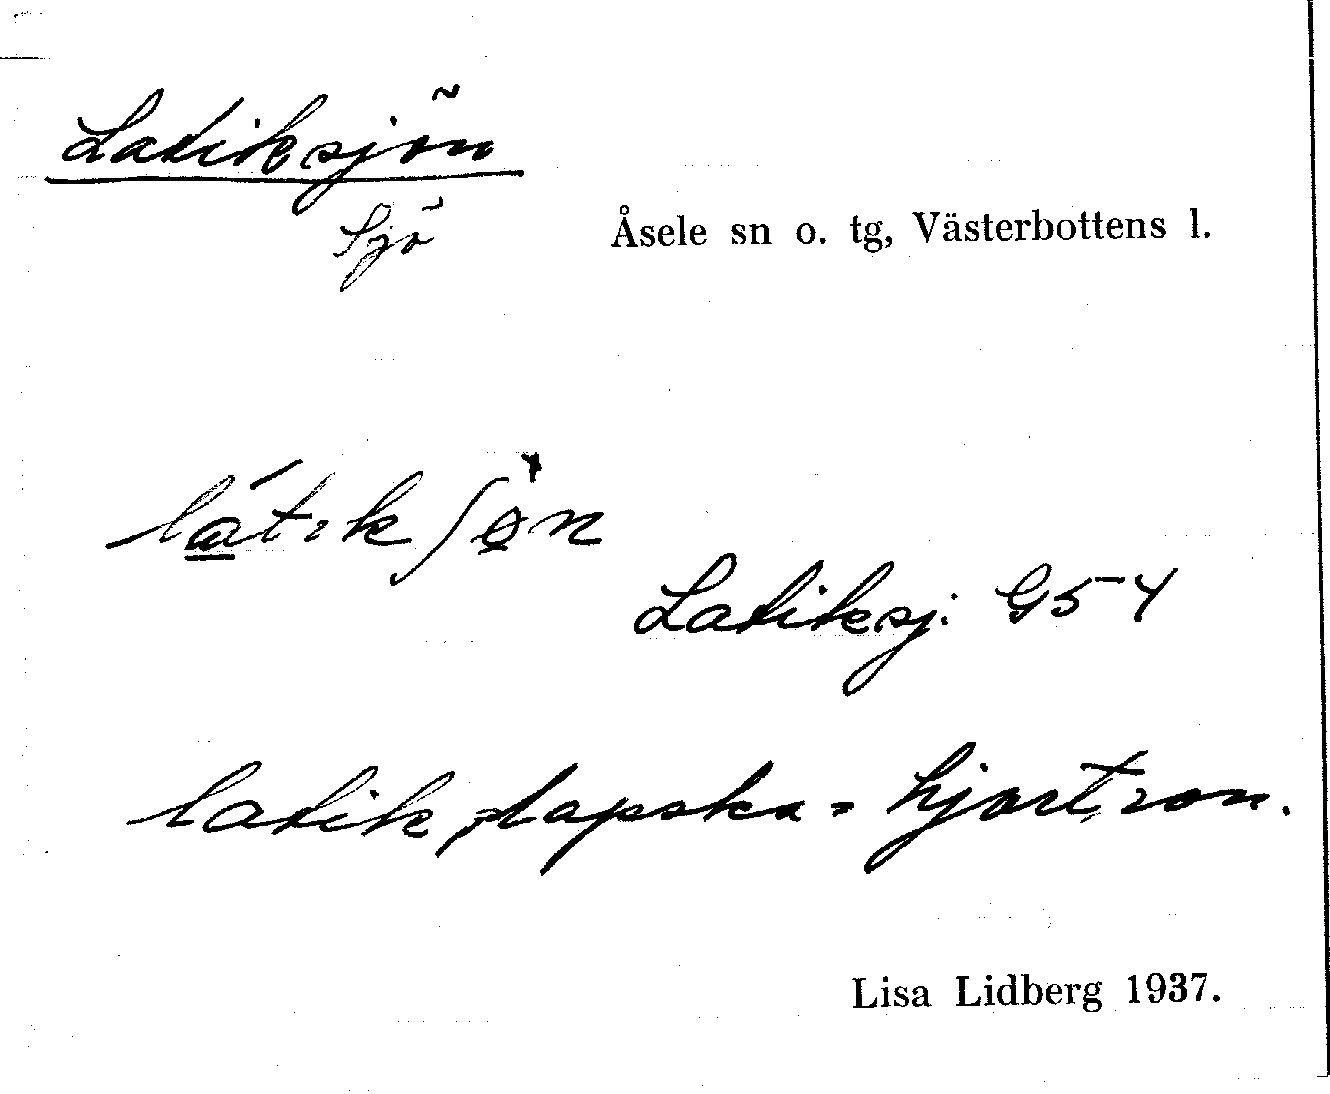 Latiksjön
Sjö
Åsele sn o. tg, Västerbottens l.
látikʃø̀n
Latiksj. G54
latik, lapska = hjortron.
Lisa Lidberg 1937.